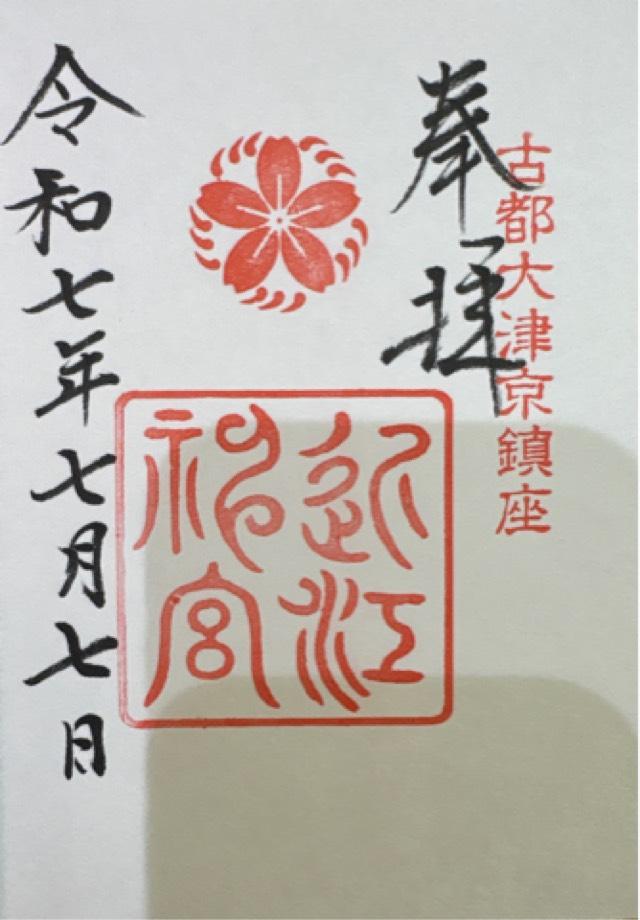 古都大津京鎮座
奉拝
近江
神宮
令和七年七月七日